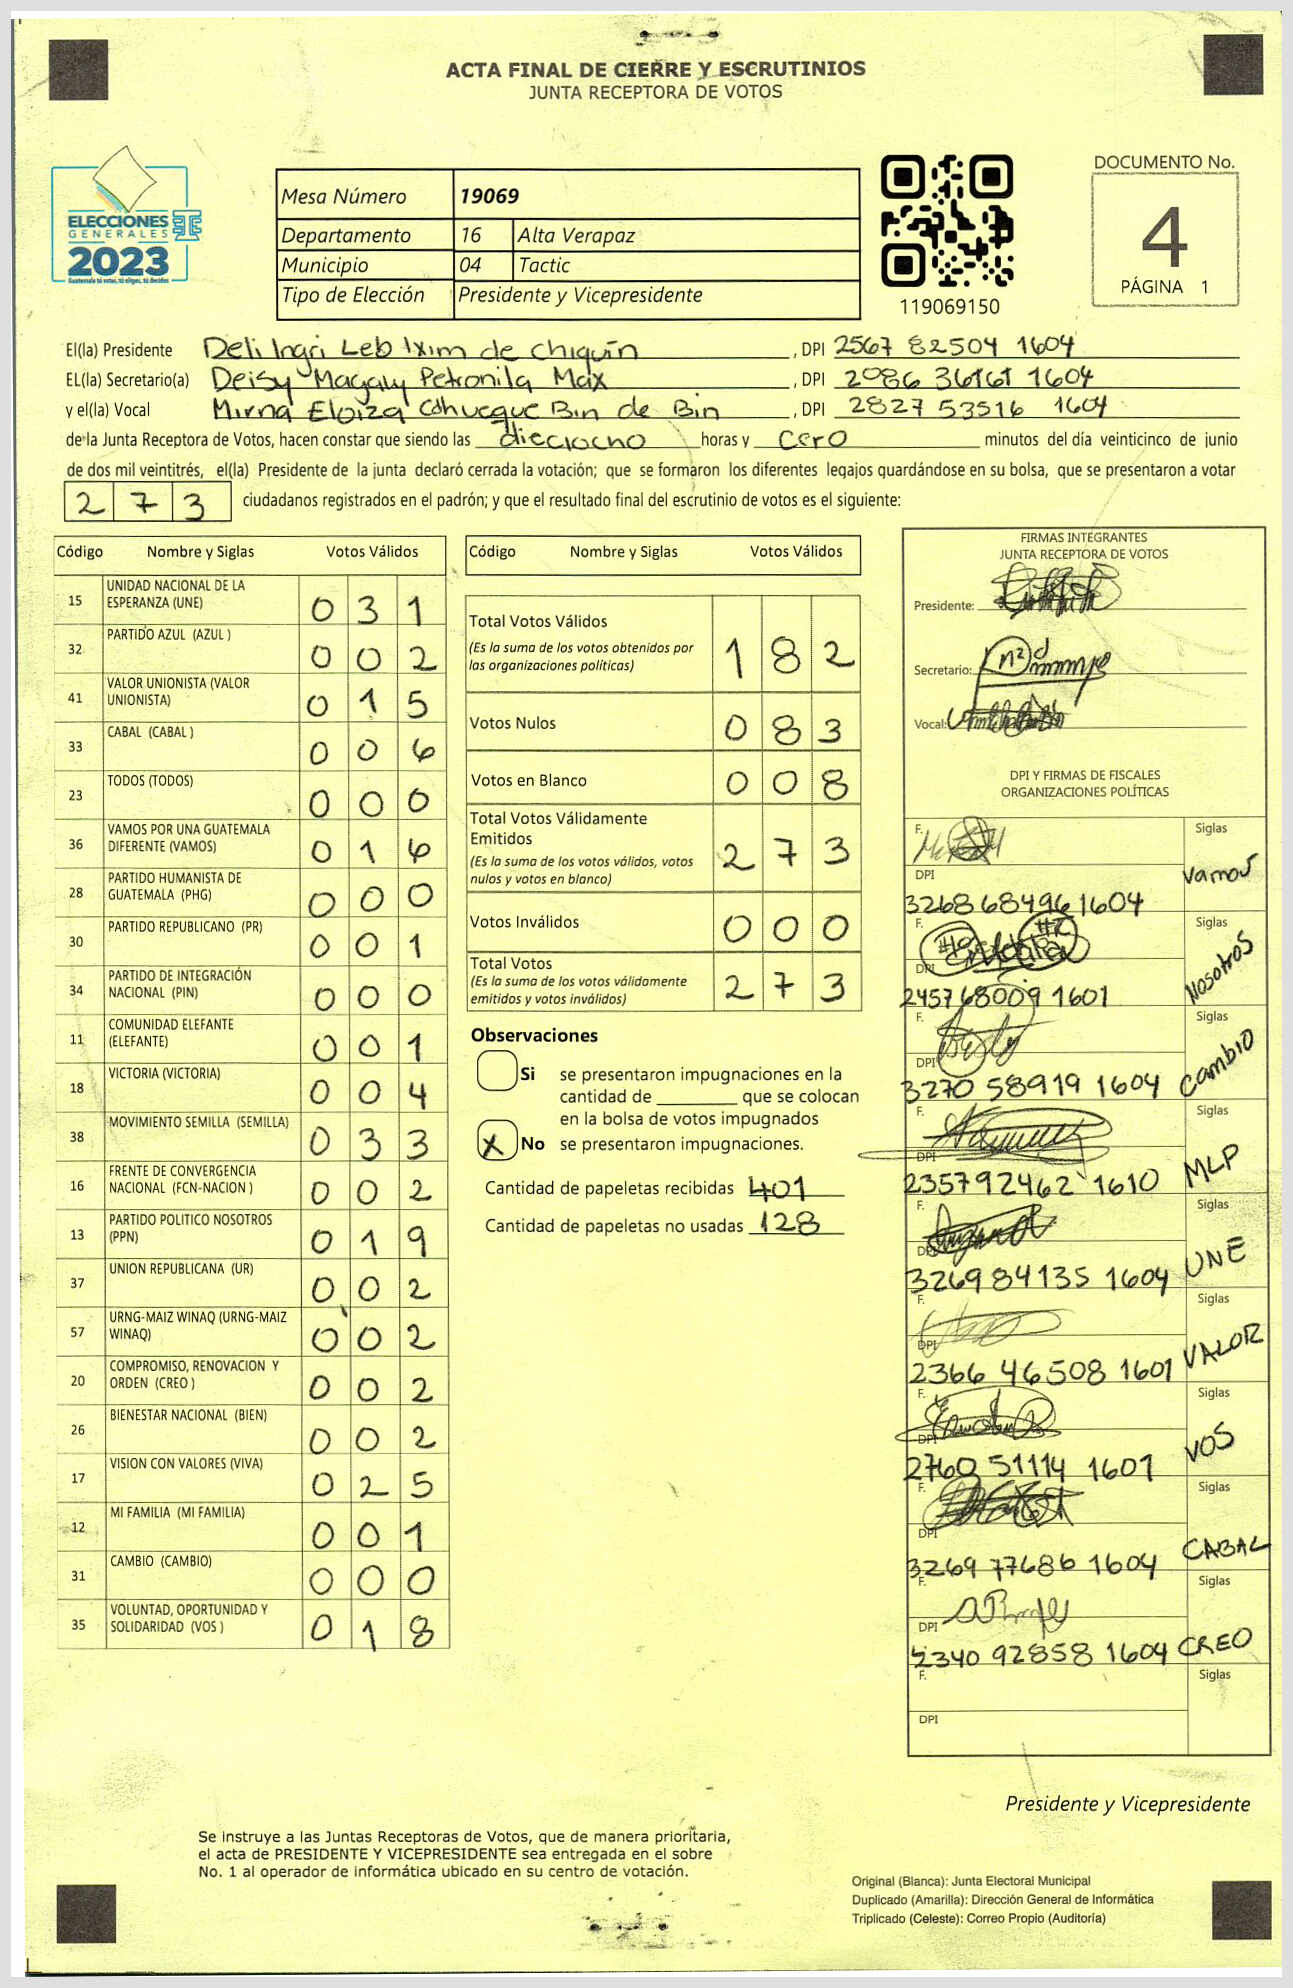 ACTA FINAL DE CIERRE Y ESCRUTINIOS
JUNTA RECEPTORA DE VOTOS
ELECCIONES
GENERALES
2023
Guatemala tú votas, tú eliges, tú decides
Mesa Número 19069
Departamento 16 Alta Verapaz
Municipio 04 Tactic
Tipo de Elección Presidente y Vicepresidente
119069150
DOCUMENTO No.
4
PÁGINA 1
El(la) Presidente Deli Ingri Leb Ixim de Chiquín, DPI 2567 82504 1604
EL(la) Secretario(a) Deisy Magaly Petronila Max, DPI 2086 36161 1604
y el(la) Vocal Mirna Eloiza Cahueque Bin de Bin, DPI 2827 53516 1604
de la Junta Receptora de Votos, hacen constar que siendo las dieciocho horas y cero minutos del día veinticinco de junio
de dos mil veintitrés, el(la) Presidente de la junta declaró cerrada la votación; que se formaron los diferentes legajos quardándose en su bolsa, que se presentaron a votar
273 ciudadanos registrados en el padrón; y que el resultado final del escrutinio de votos es el siguiente:
Código Nombre y Siglas Votos Válidos
15 UNIDAD NACIONAL DE LA ESPERANZA (UNE) 031
32 PARTIDO AZUL (AZUL ) 002
41 VALOR UNIONISTA (VALOR UNIONISTA) 015
33 CABAL (CABAL ) 006
23 TODOS (TODOS) 000
36 VAMOS POR UNA GUATEMALA DIFERENTE (VAMOS) 016
28 PARTIDO HUMANISTA DE GUATEMALA (PHG) 000
30 PARTIDO REPUBLICANO (PR) 001
34 PARTIDO DE INTEGRACIÓN NACIONAL (PIN) 000
11 COMUNIDAD ELEFANTE (ELEFANTE) 001
18 VICTORIA (VICTORIA) 004
38 MOVIMIENTO SEMILLA (SEMILLA) 033
16 FRENTE DE CONVERGENCIA NACIONAL (FCN-NACION ) 002
13 PARTIDO POLITICO NOSOTROS (PPN) 019
37 UNION REPUBLICANA (UR) 002
57 URNG-MAIZ WINAQ (URNG-MAIZ WINAQ) 002
20 COMPROMISO, RENOVACION Y ORDEN (CREO ) 002
26 BIENESTAR NACIONAL (BIEN) 002
17 VISION CON VALORES (VIVA) 025
12 MI FAMILIA (MI FAMILIA) 001
31 CAMBIO (CAMBIO) 000
35 VOLUNTAD, OPORTUNIDAD Y SOLIDARIDAD (VOS ) 018
Código Nombre y Siglas Votos Válidos
Total Votos Válidos 182
(Es la suma de los votos obtenidos por
las organizaciones políticas)
Votos Nulos 083
Votos en Blanco 008
Total Votos Válidamente
Emitidos 273
(Es la suma de los votos válidos, votos
nulos y votos en blanco)
Votos Inválidos 000
Total Votos 273
(Es la suma de los votos válidamente
emitidos y votos inválidos)
Observaciones
Si se presentaron impugnaciones en la
cantidad de ________ que se colocan
en la bolsa de votos impugnados
X No se presentaron impugnaciones.
Cantidad de papeletas recibidas 401
Cantidad de papeletas no usadas 128
FIRMAS INTEGRANTES
JUNTA RECEPTORA DE VOTOS
Presidente:
Secretario:
Vocal:
DPI Y FIRMAS DE FISCALES
ORGANIZACIONES POLÍTICAS
F. Siglas
DPI 3268 68496 1604 Vamos
F. Siglas
DPI 2457 68009 1601 Nosotros
F. Siglas
DPI 3270 58919 1604 Cambio
F. Siglas
DPI 2357 92462 1610 MLP
F. Siglas
DPI 3269 84135 1604 UNE
F. Siglas
DPI 2366 46508 1601 VALOR
F. Siglas
DPI 2760 51114 1601 VOS
F. Siglas
DPI 3269 77686 1604 CABAL
F. Siglas
DPI 2340 92858 1604 CREO
F. Siglas
DPI
Presidente y Vicepresidente
Se instruye a las Juntas Receptoras de Votos, que de manera prioritaria,
el acta de PRESIDENTE Y VICEPRESIDENTE sea entregada en el sobre
No. 1 al operador de informática ubicado en su centro de votación.
Original (Blanca): Junta Electoral Municipal
Duplicado (Amarilla): Dirección General de Informática
Triplicado (Celeste): Correo Propio (Auditoría)